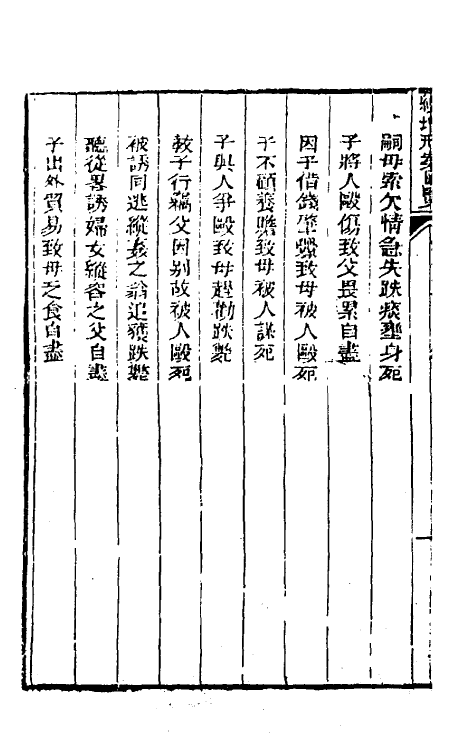 嗣母索欠情急失跌痰壅身死
子將人毆傷致父畏累自盡
因子借錢肇釁致母被人毆死
子不顧養贍致母被人謀死
子與人爭毆致母趕勸跌斃
教子行竊父因別故被人毆死
被誘同逃縱姦之翁追獲跌斃
聽從畧誘婦女縱容之父自盡
子出外貿易致母乏食自盡